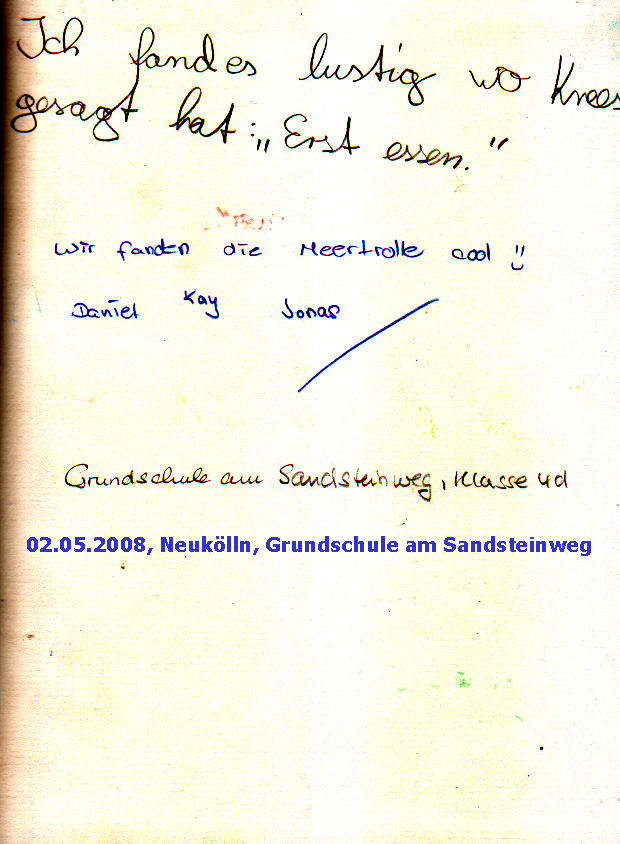 Ich fand es lustig wo Knees
gesagt hat: „Erst essen."
Wir fanden die Meertrolle cool !!
Daniel Kay Jonas
Grundschule am Sandsteinweg, Klasse 4d
02.05.2008, Neukölln, Grundschule am Sandsteinweg